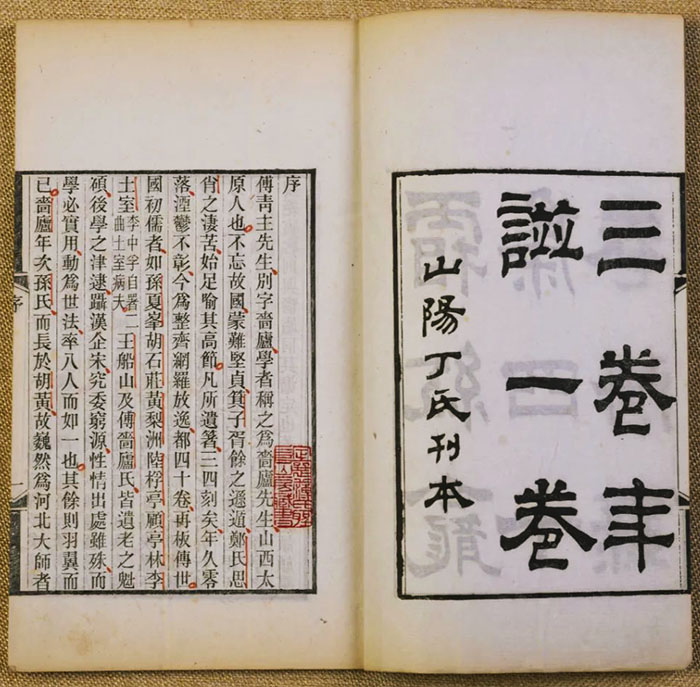 三卷年
譜一卷
山陽丁氏刊本
序
傅青主先生別字嗇廬學者稱之爲嗇廬先生山西太
原人也不忘故國蒙難堅貞箕子胥餘之遜遁鄭氏思
肖之淒苦始足喻其高節凡所遺箸三四刻矣年久零
落湮鬱不彰今爲整齊網羅放逸都四十卷再板傳世
國初儒者如孫夏峯胡石莊黃梨洲陸桴亭顧亭林李
土室李中孚自署二曲土室病夫王船山及傅嗇廬氏皆遺老之魁
碩後學之津逮躡漢企宋究委窮源性情出處雖殊而
學必實用動爲世法率八人而如一也其餘則羽翼而
已嗇廬年次孫氏而長於胡黃故巍然爲河北大師者
序
一